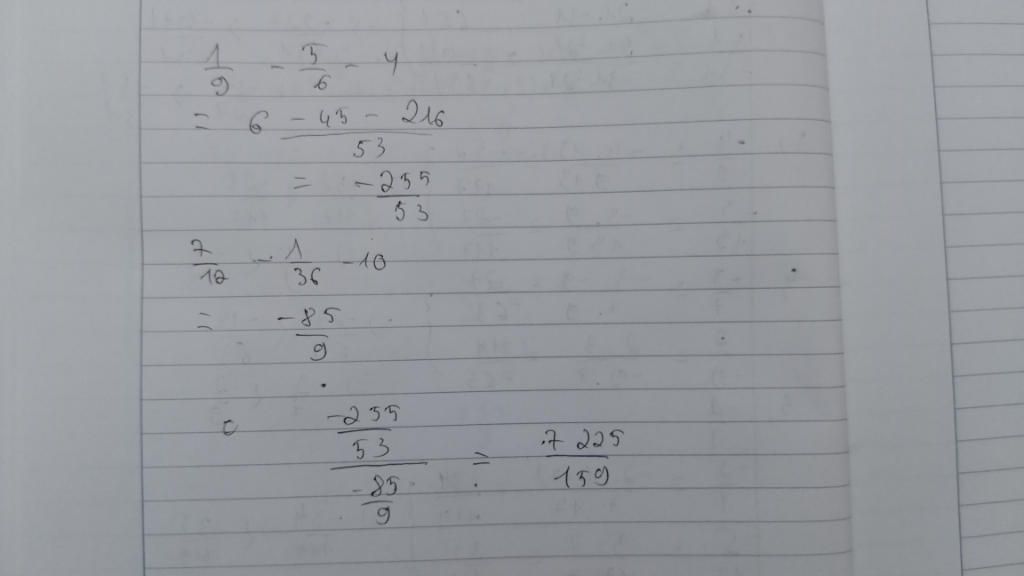 1/9 - 5/6 - 4
= (6 - 45 - 216)/53
= -255/53
7/12 - 1/36 - 10
= -85/9
c (-255/53)/(-85/9) = 7 225/159